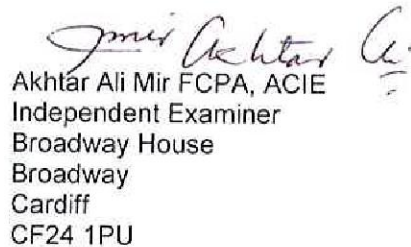 Akhtar Ali Mir FCPA, ACIE
Independent Examiner
Broadway House
Broadway
Cardiff
CF24 1PU